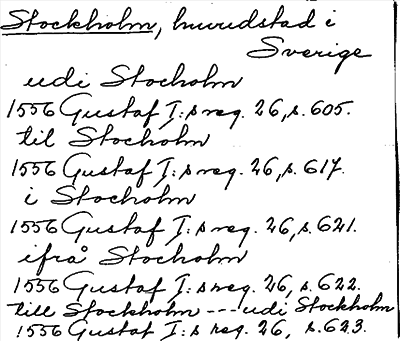 Stockholm, huvudstad i
Sverige
udi Stocholm
1556 Gustaf I:s reg. 26, s. 605.
til Stocholm
1556 Gustaf I:s reg. 26, s. 617.
i Stocholm
1556 Gustaf I:s reg. 26, s. 621.
ifrå Stocholm
1556 Gustaf I:s reg. 26, s. 622.
till Stockholm --- udi Stockholm
1556 Gustaf I:s reg. 26, s. 623.